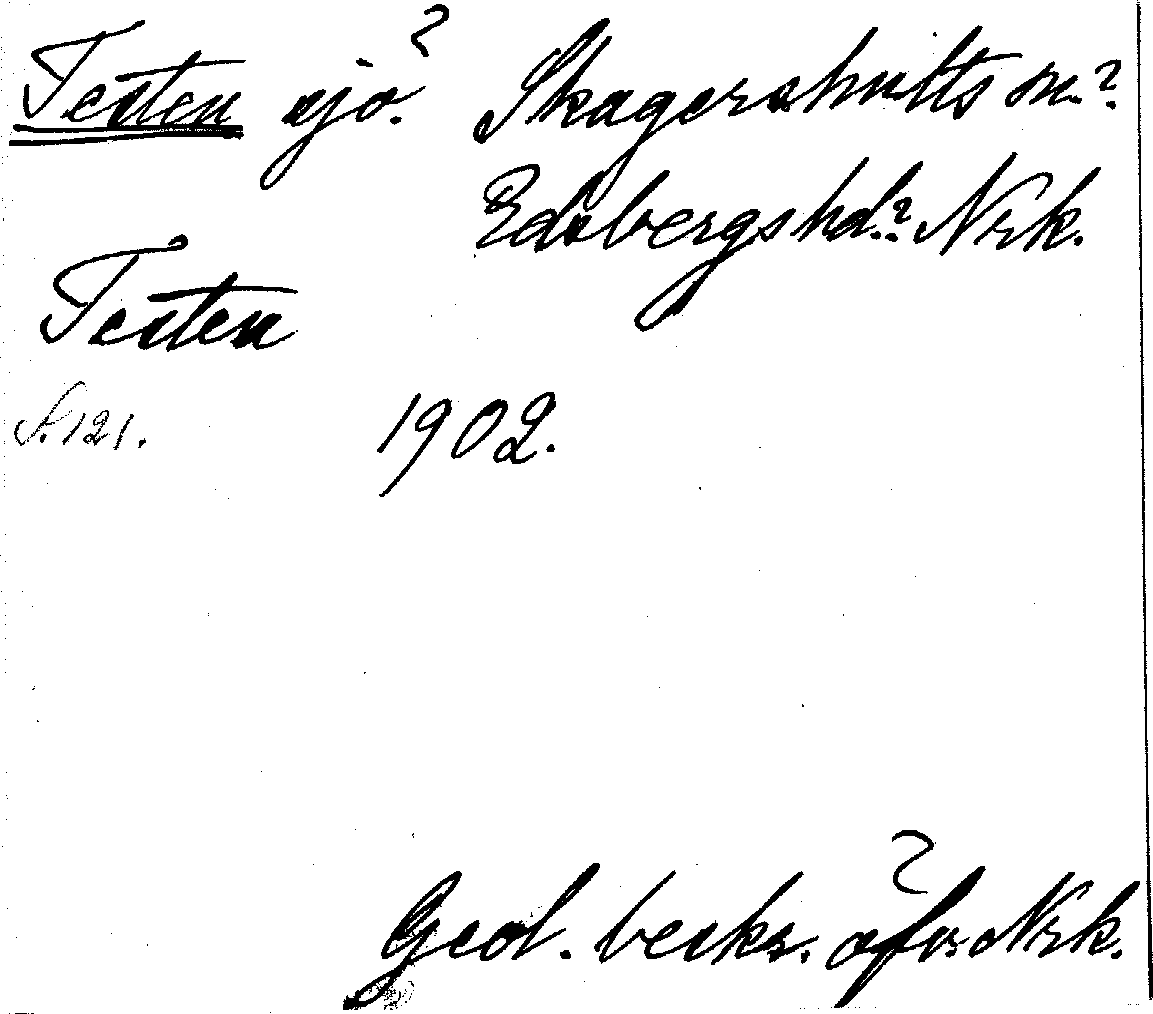 Testen sjö? Skagershults sn?
Edsbergs hd.? Nrk.
Testen
S. 121. 1902.
Geol. beskr. öfv. Nrk.